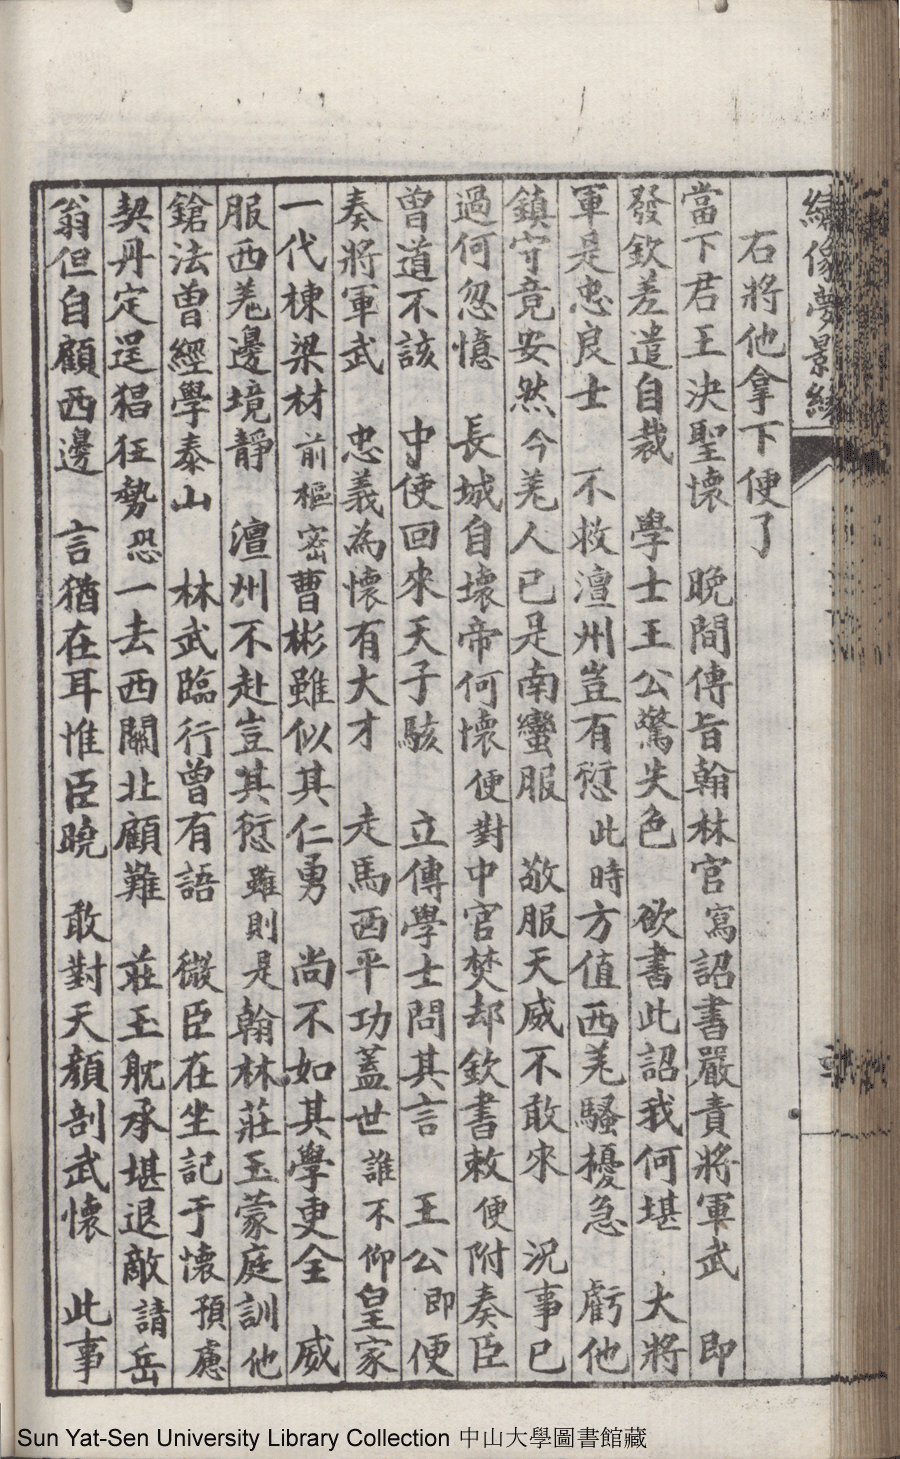 繡像夢景緣
右將他拿下便了
當下君王決聖懷　晚間傳旨翰林官寫詔書嚴責將軍武　即
發欽差遣自裁　學士王公驚失色　欲書此詔我何堪　大將
軍是忠良士　不救澶州豈有愆此時方值西羌騷擾急　虧他
鎮守竟安然今羌人已是南蠻服　敬服天威不敢來　況事已
過何忽憶　長城自壞帝何懷便對中官焚却欽書敕便附奏臣
曾道不該　中使回來天子駭　立傳學士問其言　王公即便
奏將軍武　忠義為懷有大才　走馬西平功蓋世誰不仰皇家
一代棟梁材前樞密曹彬雖似其仁勇　尚不如其學更全　威
服西羌邊境靜　澶州不赴豈其愆雖則是翰林莊玉蒙庭訓他
鎗法曾經學泰山　林武臨行曾有語　微臣在坐記于懷預慮
契丹定逞猖狂勢恐一去西關北顧難　莊玉躭承堪退敵請岳
翁但自顧西邊　言猶在耳惟臣曉　敢對天顏剖武懷　此事
Sun Yat-Sen University Library Collection 中山大學圖書館藏